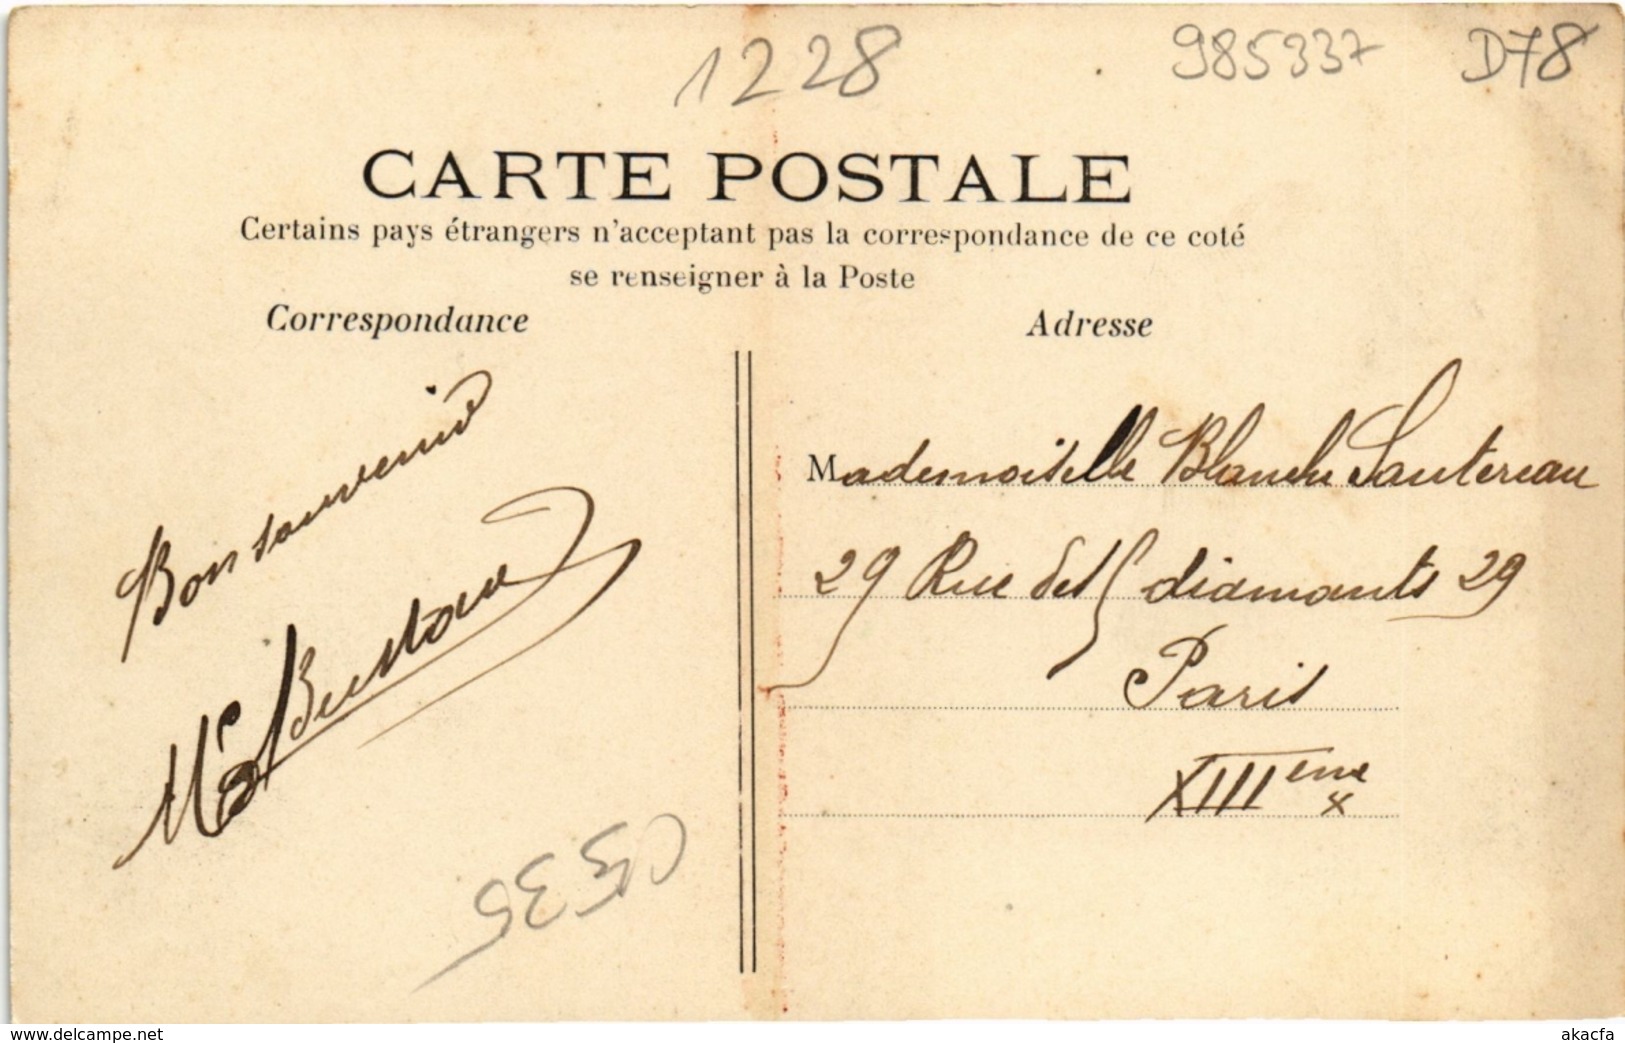 1228
985337
D78
CARTE POSTALE
Certains pays étrangers n'acceptant pas la correspondance de ce coté
se renseigner à la Poste
Correspondance
Adresse
Bon souvenir
Mademoiselle Blanche Sautereau
29 Rue des diamants 29
Paris
XIIIème
www.delcampe.net
akacfa